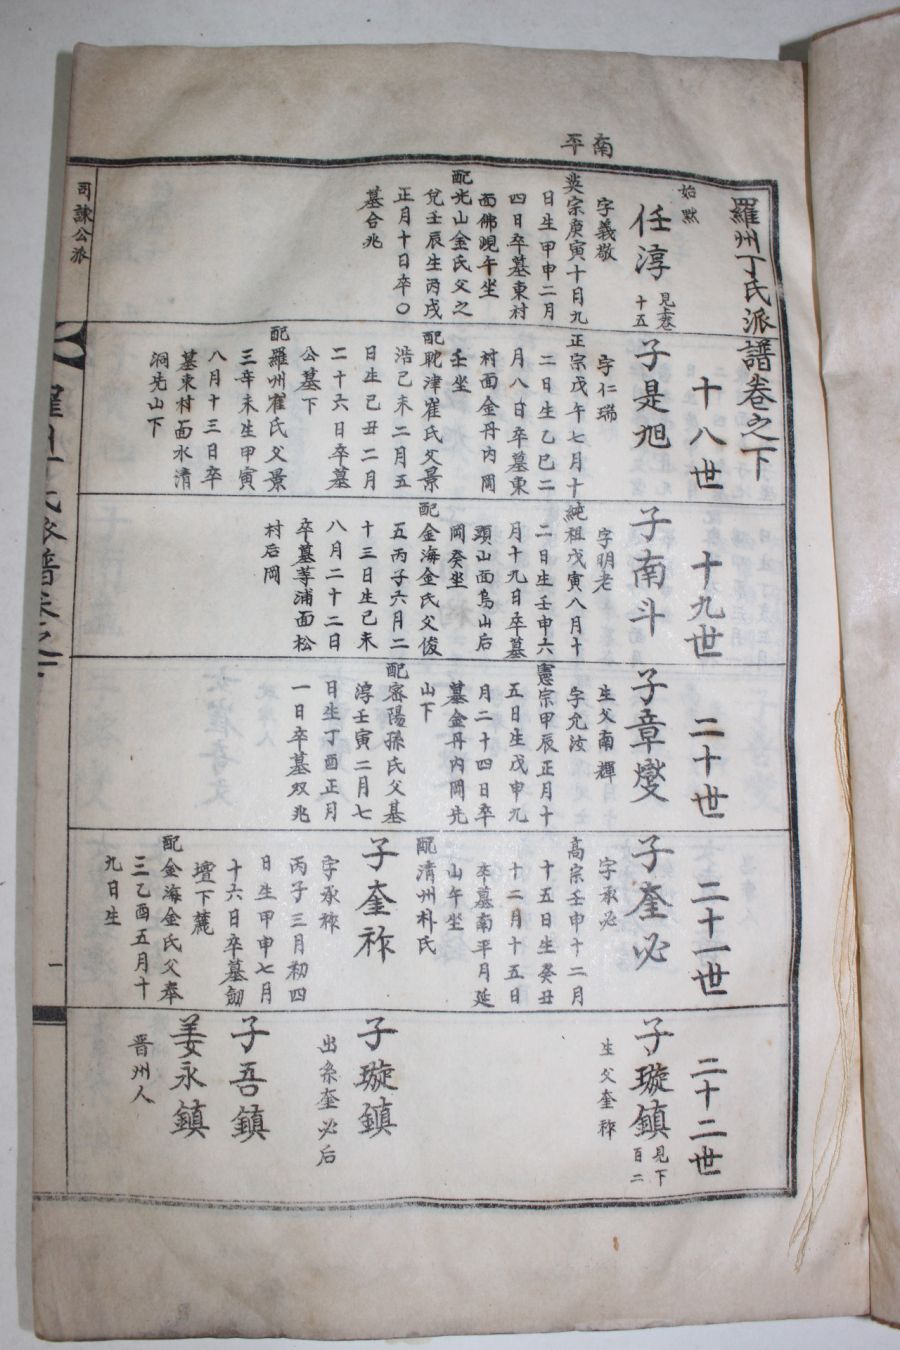 南平
羅州丁氏派譜卷之下
始默
任淳
見上卷
十五
字義敬
英宗庚寅十月九
日生甲申二月
四日卒墓東村
面佛峴午坐
配光山金氏父之
兌壬辰生丙戌
正月十日卒〇
墓合兆
十八世
子是旭
字仁瑞
正宗戊午七月十
二日生乙巳二
月八日卒墓東
村面金丹内岡
壬坐
配耽津崔氏父景
浩己未二月五
日生己丑二月
二十六日卒墓
公墓下
配羅州崔氏父景
三辛未生甲寅
八月十三日卒
墓東村面水清
洞先山下
十九世
子南斗
字明老
純祖戊寅八月十
二日生壬申六
月十九日卒墓
頭山面烏山后
岡癸坐
配金海金氏父俊
五丙子六月二
十三日生己未
八月二十二日
卒墓等浦面松
村后岡
二十世
子章燮
生父南輝
字允汝
憲宗甲辰正月十
五日生戊申九
月二十四日卒
墓金丹内岡先
山下
配密陽孫氏父基
淳壬寅二月七
日生丁酉正月
一日卒墓双兆
二十一世
子奎必
字承必
高宗壬申十二月
十五日生癸丑
十二月十五日
卒墓南平月延
山午坐
配清州朴氏
子奎祚
字承祚
丙子三月初四
日生甲申七月
十六日卒墓劒
壇下麓
配金海金氏父奉
三乙酉五月十
九日生
二十二世
子璇鎮
見下
百二
生父奎祚
子璇鎮
出系奎必后
子吾鎮
姜永鎮
晋州人
司諫公派
羅州丁氏派譜卷之下
一